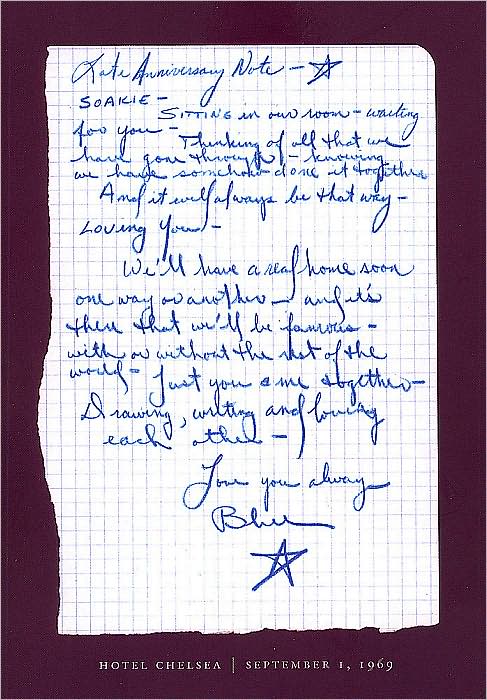 Late Anniversary Note -
SOAKIE -
SITTING in our room - waiting
for you -
Thinking of all that we
have gone through - knowing
we have somehow done it together
And it will always be that way -
LOVING You -
We'll have a real home soon
one way or another - and it's
then that we'll be famous -
with or without the rest of the
world - Just you & me together -
Drawing, writing and loving
each other -
Love you always
Blue
HOTEL CHELSEA | SEPTEMBER 1, 1969